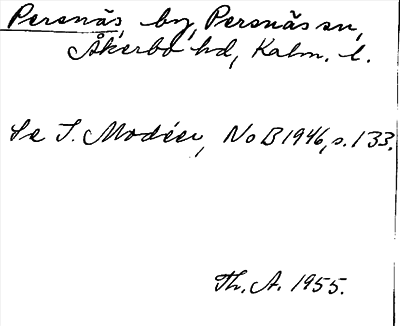 Persnäs, by, Persnäs sn,
Åkerbo hd, Kalm. l.
Se I. Modéer, NoB 1946, s. 133.
Th. A. 1955.